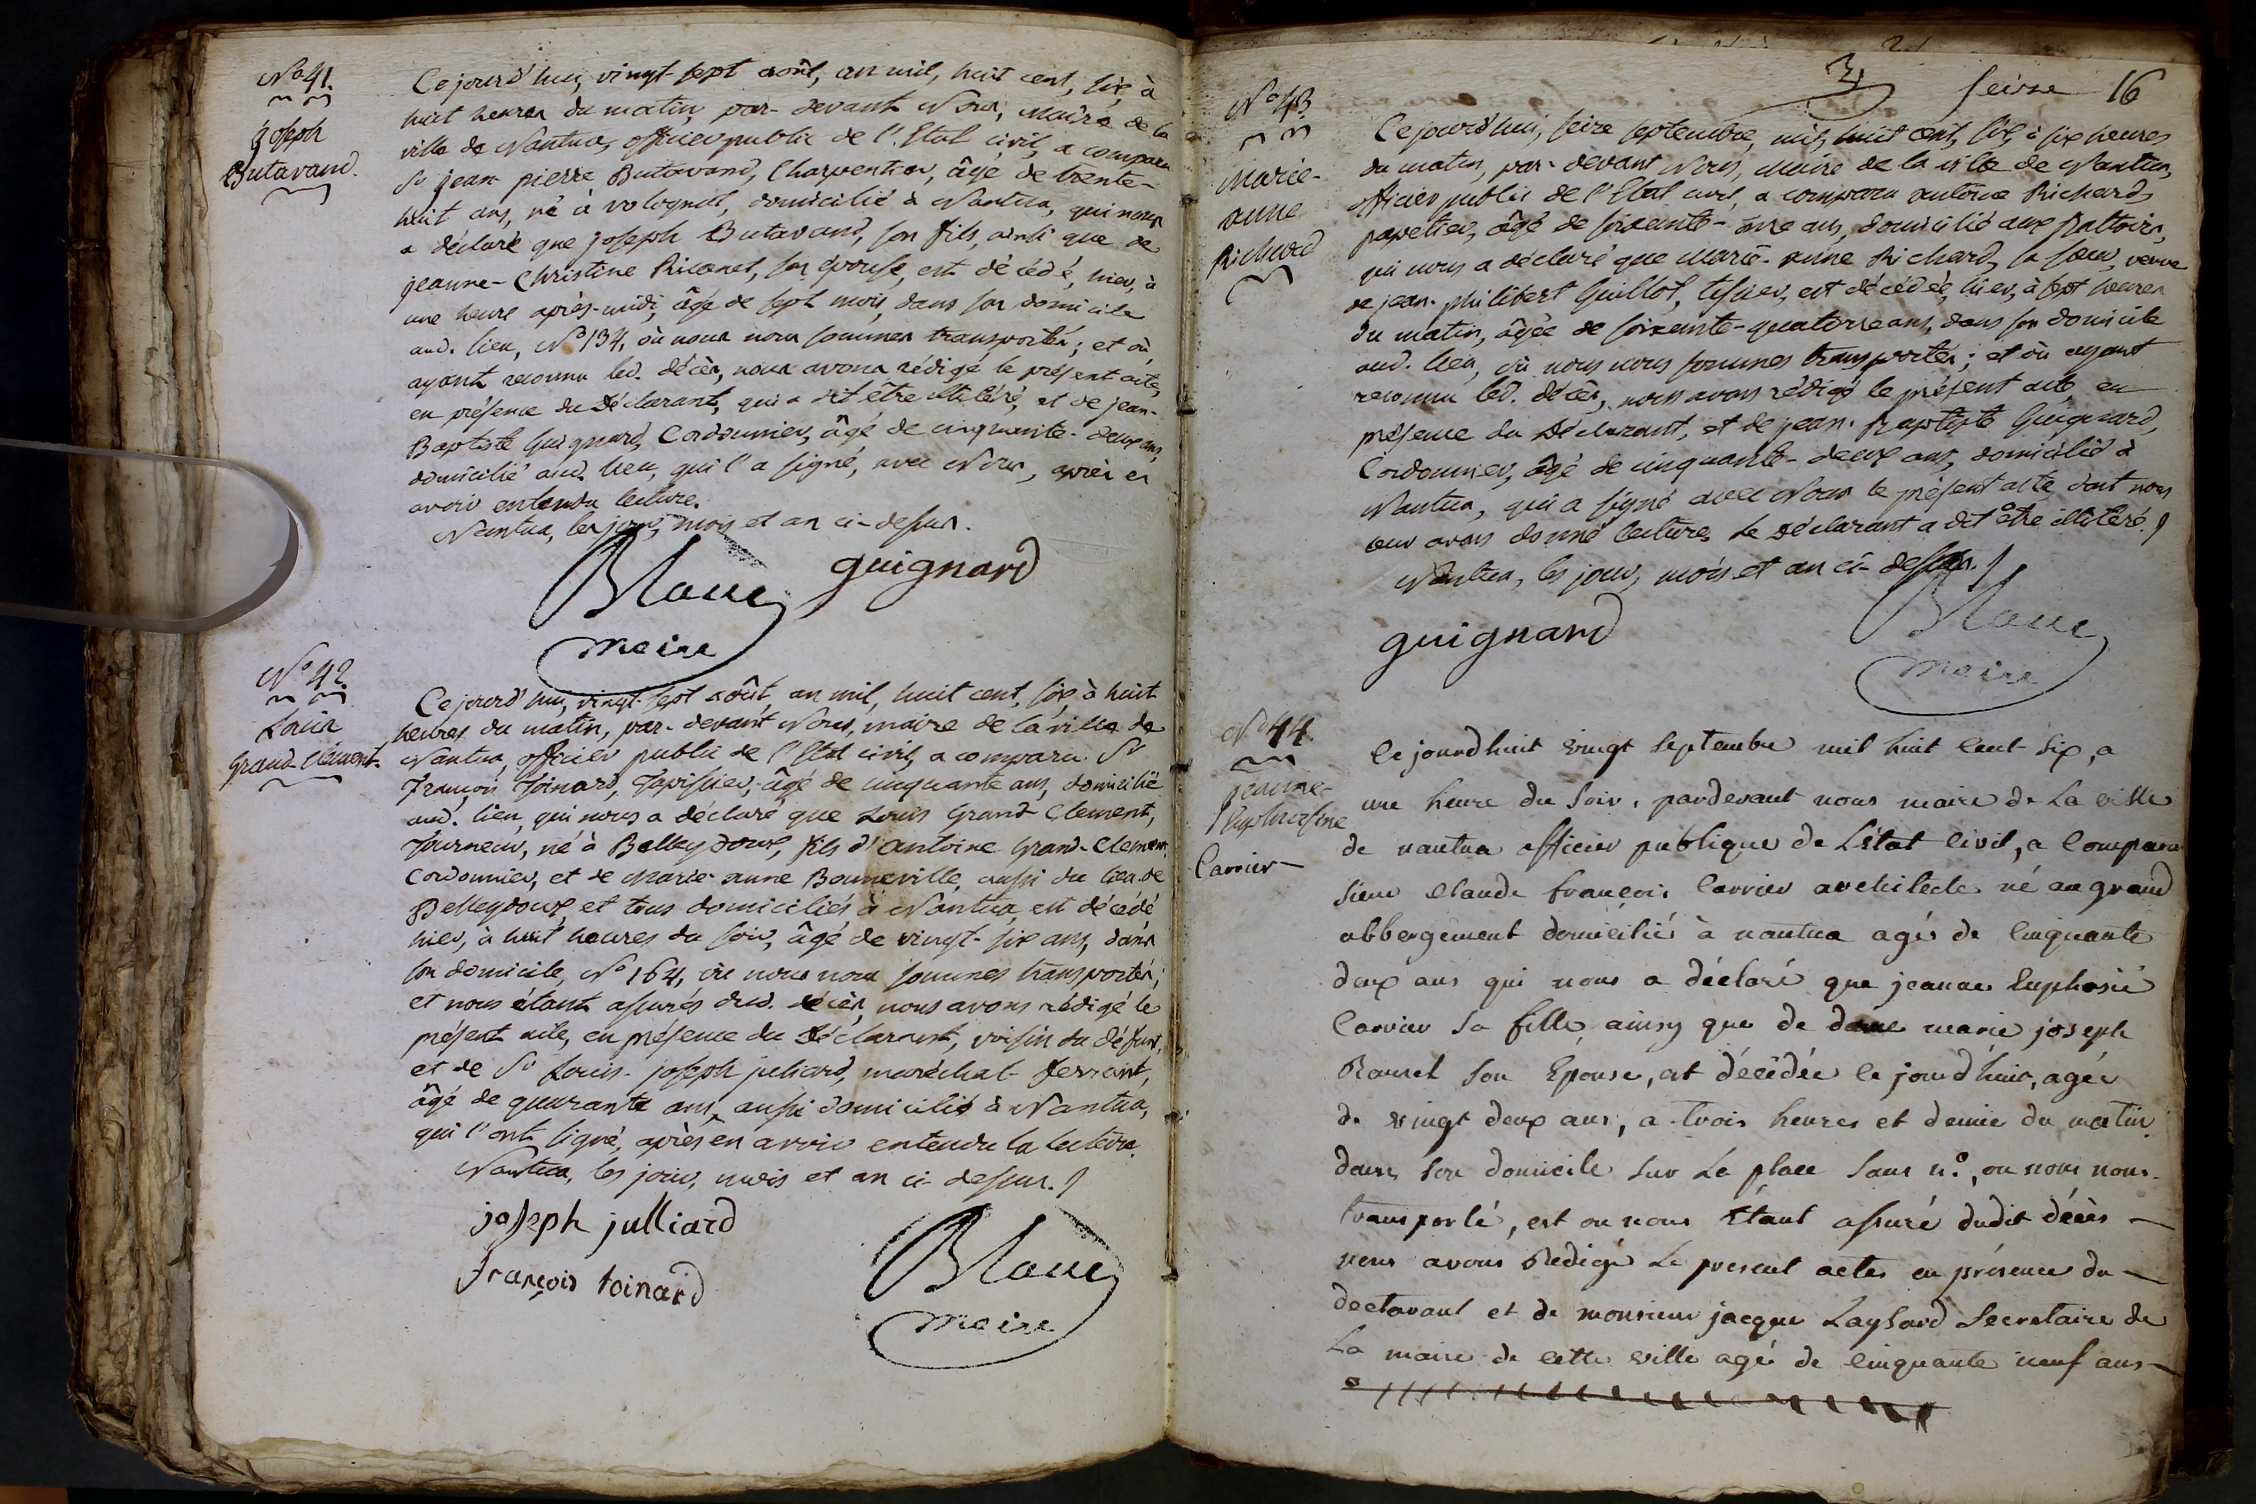 N° 41.
Joseph
Butavand.
Ce jourd'hui, vingt-sept août, an mil, huit cent, six, à
huit heures du matin, par-devant Nous, Maire de la
ville de Nantua, officier public de l'Etat civil, a comparu
Sr jean pierre Butavand, Charpentier, âgé de trente-
huit ans, né à volognat, domicilié à Nantua, qui nous
a déclaré que joseph Butavand, son fils, ainsi que de
jeanne-Christine son épouse, est décédé, hier, à
une heure après-midi, âgé de sept mois, dans son domicile
aud. lieu, N° 134, où nous nous sommes transportés; et où,
ayant reconnu led. décès, nous avons rédigé le présent acte,
en présence du Déclarant, qui a dit être illitéré, et de jean-
Baptiste Guignard, Cordonnier, âgé de cinquante-deux ans,
domicilié aud. lieu, qui l'a signé, avec Nous, après en
avoir entendu lecture.
Nantua, les jour, mois et an ci-dessus.
Blanc guignard
maire
N° 42.
Louis
Grand-Clément.
Ce jourd'hui, vingt-sept août, an mil, huit cent, six, à huit
heures du matin, par-devant Nous, maire de la ville de
Nantua, officier public de l'Etat civil, a comparu Sr
François Toinard, Tapissier, âgé de cinquante ans, domicilié
aud. lieu, qui nous a déclaré que Louis Grand-Clement,
Tourneur, né à Belleydoux, fils d'Antoine Grand-Clement,
Cordonnier, et de Marie-anne Bonneville, aussi du lieu de
Belleydoux, et tous domiciliés à Nantua, est décédé
hier, à huit heures du soir, âgé de vingt-six ans, dans
son domicile, N° 164, où nous nous sommes transportés;
et nous étant assurés dud. décès, nous avons rédigé le
présent acte, en présence du Déclarant, voisin du défunt,
et de Sr Louis-joseph juliard, maréchal-ferrant,
âgé de quarante ans, aussi domicilié à Nantua,
qui l'ont signé, après en avoir entendu la lecture.
Nantua, les jour, mois et an ci-dessus.
joseph julliard
françois toinard
Blanc
maire
seize 16
N° 43.
Marie-
anne
Richard
Ce jourd'hui, seize septembre, mil, huit cent, six, à six heures
du matin, par-devant Nous, Maire de la ville de Nantua,
officier public de l'Etat civil, a comparu antoine Richard,
papetier, âgé de soixante-onze ans, domicilié aux Battoirs,
qui nous a déclaré que Marie-anne Richard, sa soeur, veuve
de jean-philibert Guillot, tissier, est décédée, hier, à sept heures
du matin, âgée de soixante-quatorze ans, dans son domicile
aud. lieu, où nous nous sommes transportés; et où ayant
reconnu led. décès, nous avons rédigé le présent acte, en
présence du Déclarant, et de jean-Baptiste Guignard,
Cordonnier, âgé de cinquante-deux ans, domicilié à
Nantua, qui a signé avec Nous le présent acte, dont nous
leur avons donné lecture. Le Déclarant a dit être illitéré.
Nantua, les jour, mois et an ci-dessus.
guignard Blanc
maire
N° 44.
jeanne-
Euphrosine
Carrier
Ce jourdhuit vingt septembre mil huit cent six, a
une heure du soir, pardevant nous maire de La ville
de nantua officier publique de L'état civil, a comparu
sieur Claude françois Carrier architecte né au grand
abbergement domicilié à nantua agés de cinquante
deux ans qui nous a déclaré que jeanne Euphosie
Carrier sa fille, ainsy que de dame marie joseph
son Epouse, est décédée ce jourd'huit, agée
de vingt deux ans, a trois heures et demie du matin,
dans son domicile sur La place sans n°, ou nous nous
transporté, est ou nous Etant assuré dudit décès
nous avons Redigé Le present actes en présence du
declarant et de monsieur jacque Laysard Secretaire de
La maire de cette ville agé de cinquante neuf ans